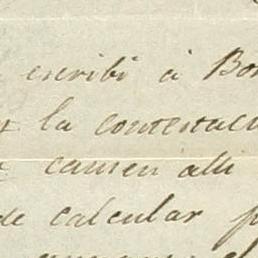 escribi á Bo
la contestac
causen alli
de calcular p